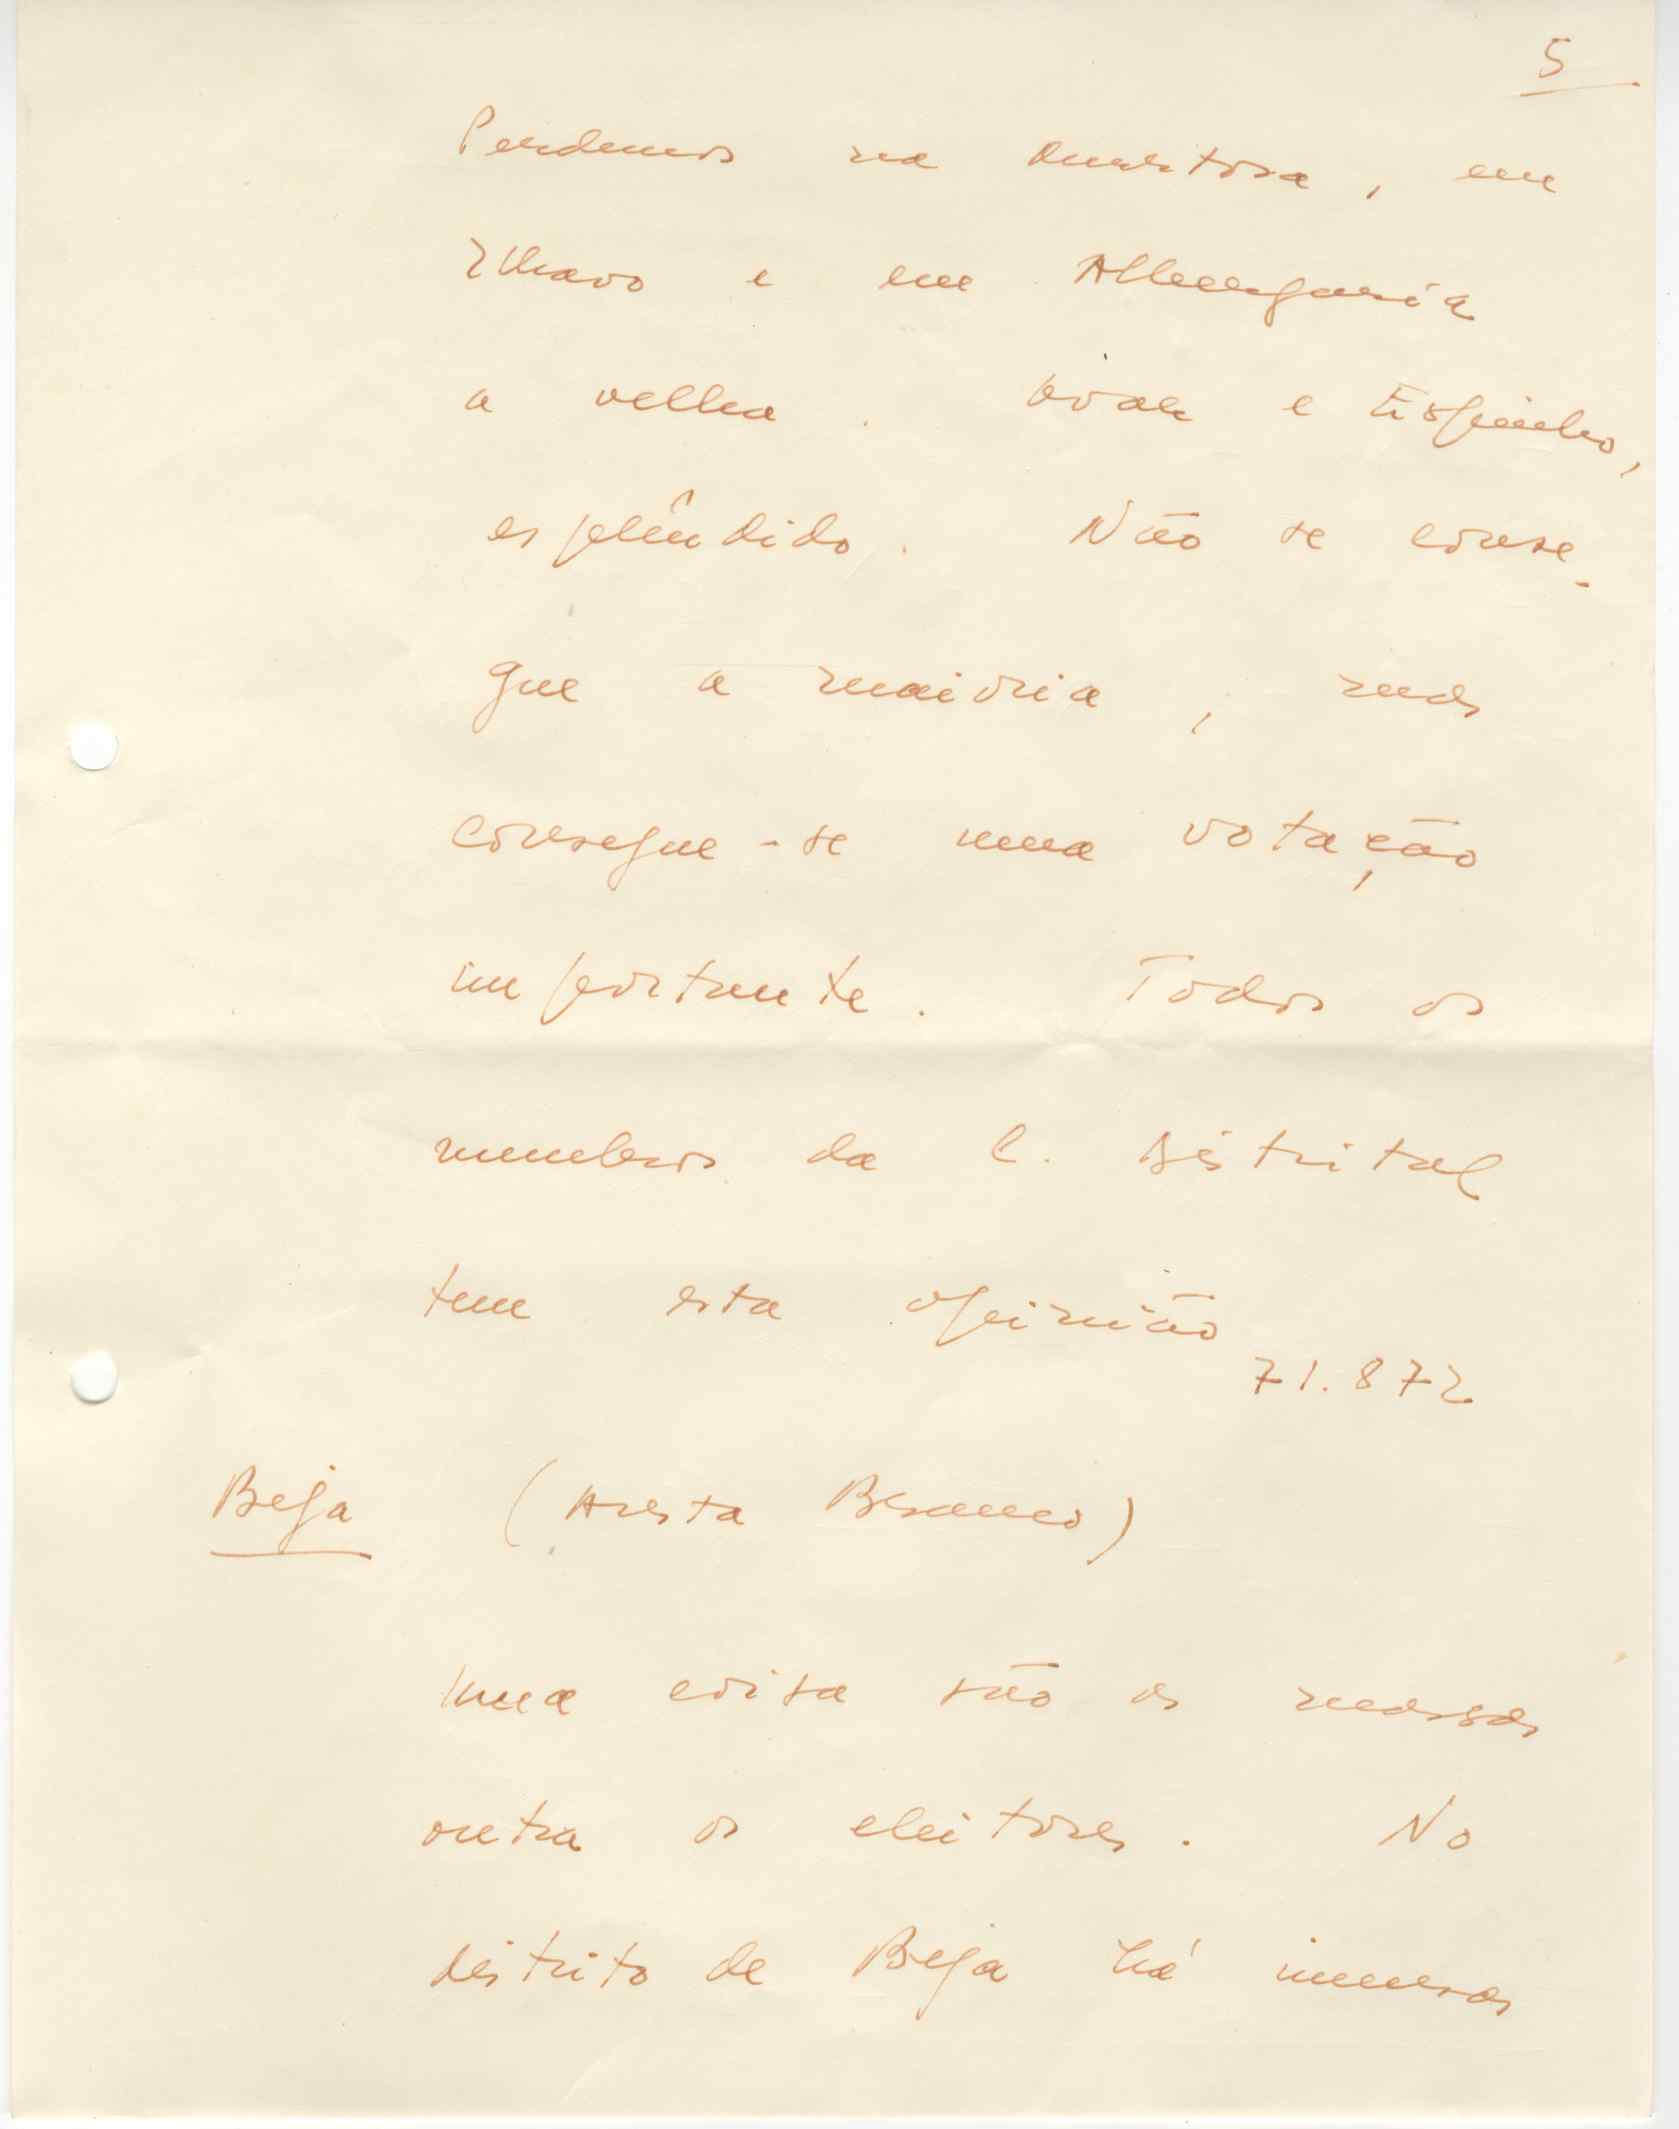 5
Perdemos na Murtosa, em
Ilhavo e em Albergaria
a velha. Ovar e Espinho,
esplêndido. Não se conse-
gue a maioria, mas
consegue-se uma votação
importante. Todos os
membros da C. Distrital
tem esta opinião
71.872
Beja (Aresta Branco)
Uma coisa são as massas
outra os eleitores. No
distrito de Beja há imensas